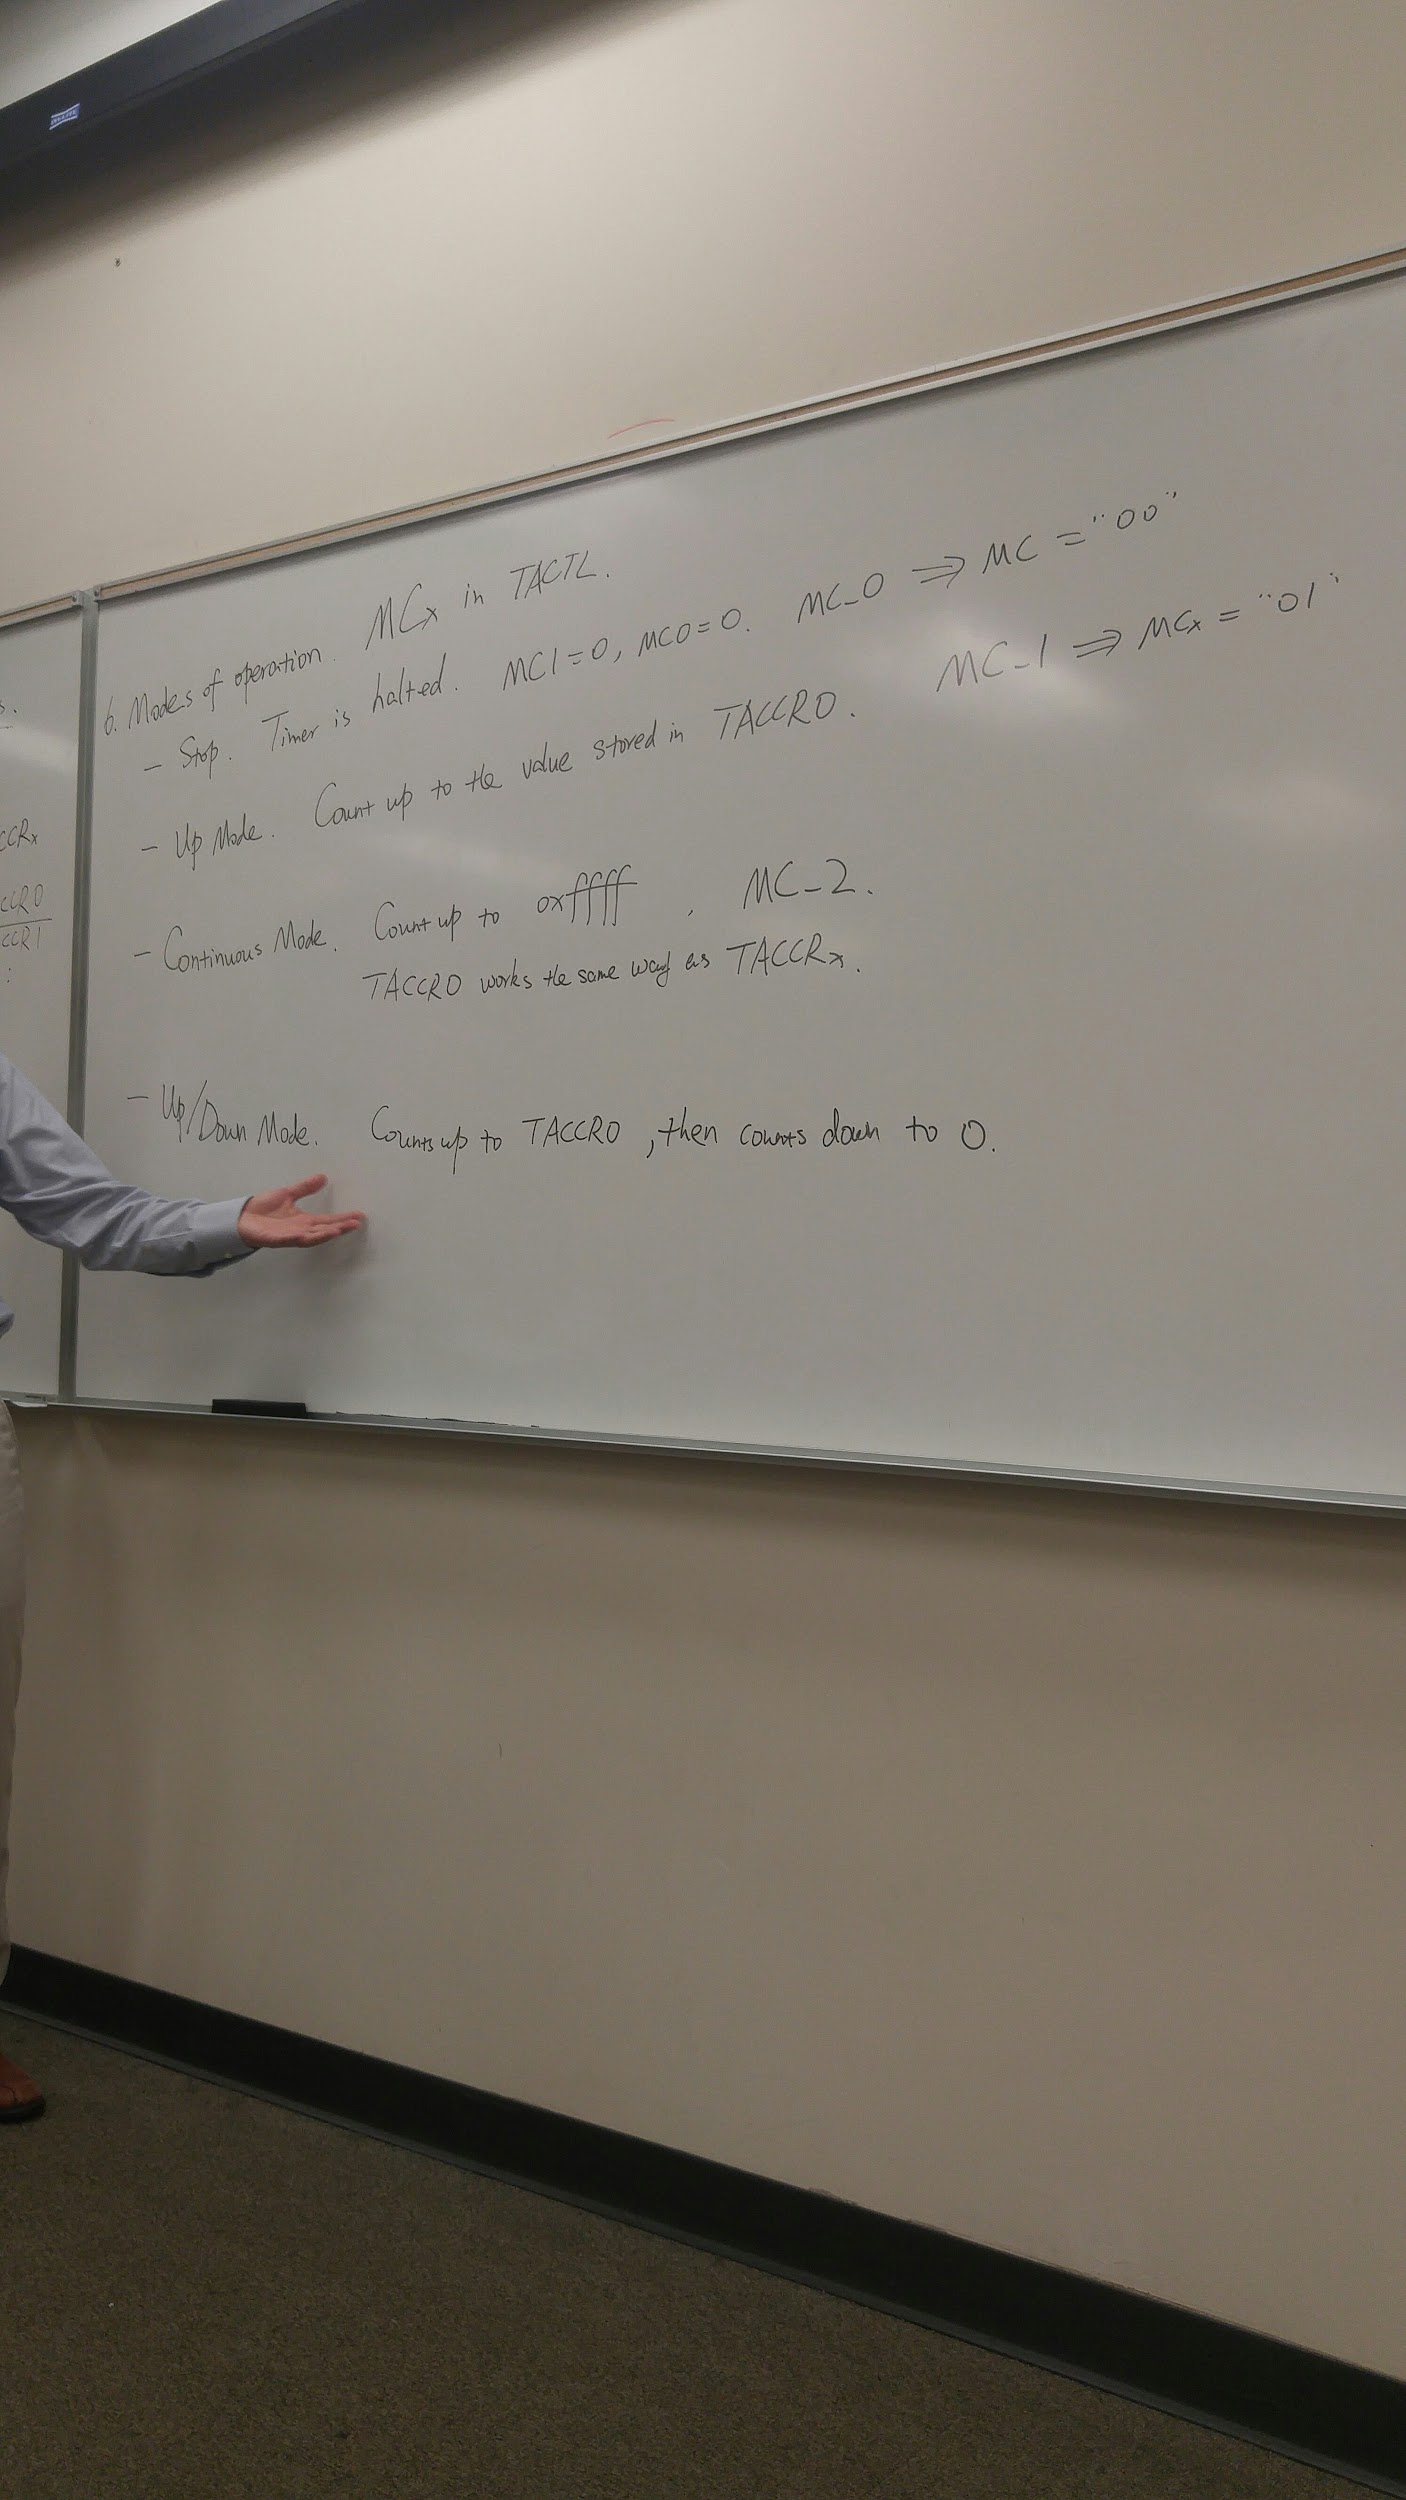 6. Modes of operation. MCx in TACTL.
- Stop. Timer is halted. MC1=0, MC0=0. MC_0 ⇒ MC = "00"
- Up Mode. Count up to the value stored in TACCR0. MC_1 ⇒ MCx = "01"
- Continuous Mode. Count up to 0xffff, MC_2.
TACCR0 works the same way as TACCRx.
- Up/Down Mode. Counts up to TACCR0, then counts down to 0.
s.
CCRx
CCR0
CCR1
: